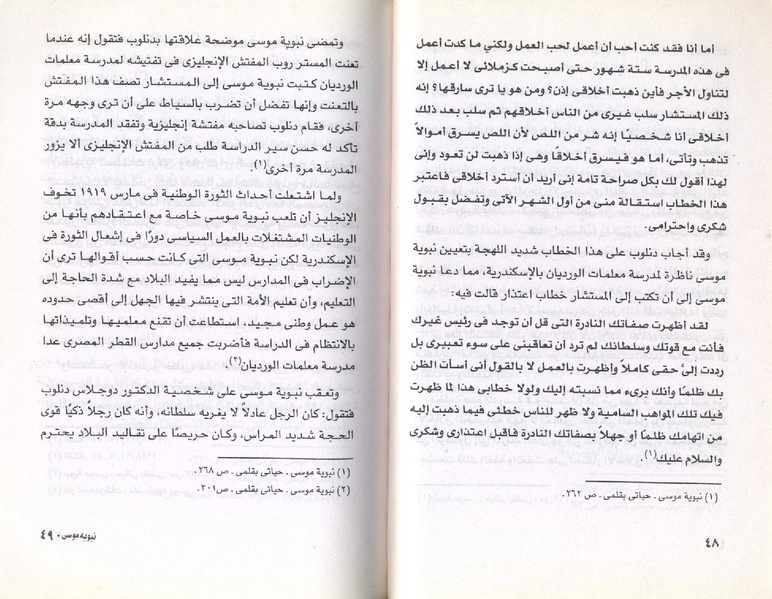 أما أنا فقد كنت أحب أن أعمل لحب العمل ولكني ما كدت أعمل
فى هذه المدرسة ستة شهور حتى أصبحت كزملائى لا أعمل إلا
لتناول الأجر فأين ذهبت أخلاقى إذن؟ ومن هو يا ترى سارقها؟ إنه
ذلك المستشار سلب غيرى من الناس أخلاقهم ثم سلب بعد ذلك
أخلاقى أنا شخصيًا إنه شر من اللص لأن اللص يسرق أموالاً
تذهب وتأتى، اما هو فيسرق أخلاقًا وهى إذا ذهبت لن تعود وإنى
لهذا أقول لك بكل صراحة تامة إنى أريد أن أسترد أخلاقى فاعتبر
هذا الخطاب استقالة منى من أول الشهر الأتى وتفضل بقبول
شكرى واحترامى.
وقد أجاب دنلوب على هذا الخطاب شديد اللهجة بتعيين نبوية
موسى ناظرة لمدرسة معلمات الورديان بالإسكندرية، مما دعا نبوية
موسى إلى أن تكتب إلى المستشار خطاب اعتذار قالت فيه:
لقد اظهرت صفاتك النادرة التى قل أن توجد فى رئيس غيرك
فأنت مع قوتك وسلطانك لم ترد أن تعاقبنى على سوء تعبيرى بل
رددت إلىَّ حقى كاملاً وأظهرت بالعمل لا بالقول أنى أسأت الظن
بك ظلمًا وأنك برىء مما نسبته إليك ولولا خطابى هذا لما ظهرت
فيك تلك المواهب السامية ولا ظهر للناس خطئى فيما ذهبت إليه
من اتهامك ظلمًا أو جهلاً بصفاتك النادرة فاقبل اعتذارى وشكرى
والسلام عليك(١).
(١) نبوية موسى ـ حياتى بقلمى ـ ص ٢٦٢.
٤٨
وتمضى نبوية موسى موضحة علاقتها بدنلوب فتقول إنه عندما
تعنت المستر روب المفتش الإنجليزى فى تفتيشه لمدرسة معلمات
الورديان كتبت نبوية موسى إلى المستشار تصف هذا المفتش
بالتعنت وإنها تفضل أن تضرب بالسياط على أن ترى وجهه مرة
أخرى، فقام دنلوب تصاحبه مفتشة إنجليزية وتفقد المدرسة بدقة
تأكد له حسن سير الدراسة طلب من المفتش الإنجليزى ألا يزور
المدرسة مرة أخرى(١)
ولما اشتعلت أحداث الثورة الوطنية فى مارس ١٩١٩ تخوف
الإنجليز أن تلعب نبوية موسى خاصة مع اعتقادهم بأنها من
الوطنيات المشتغلات بالعمل السياسى دورًا فى إشعال الثورة فى
الإسكندرية لكن نبوية موسى التى كانت حسب أقوالها ترى أن
الإضراب فى المدارس ليس مما يفيد البلاد مع شدة الحاجة إلى
التعليم، وأن تعليم الأمة التى ينتشر فيها الجهل إلى أقصى حدوده
هو عمل وطنى مجيد، استطاعت أن تقنع معلميها وتلميذاتها
بالانتظام فى الدراسة فأضربت جميع مدارس القطر المصرى عدا
مدرسة معلمات الورديان(٢).
وتعقب نبوية موسى على شخصية الدكتور دوجلاس دنلوب
فتقول: كان الرجل عادلاً لا يغريه سلطانه، وأنه كان رجلاً ذكيًا قوى
الحجة شديد المراس، وكان حريصًا على تقاليد البلاد يحترم
(١) نبوية موسى ـ حياتى بقلمى ـ ص ٢٦٨.
(٢) نبوية موسى ـ حياتى بقلمى ـ ص ٣٠١.
نبويه موسى - ٤٩